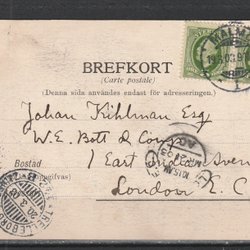 BREFKORT
(Carte postale)
Denna sida användes endast för adresseringen.
MALMÖ
Johan Kihlman Esq
W.E. Bott & Comp
1 East India Avenue
Bostad
London E.C.